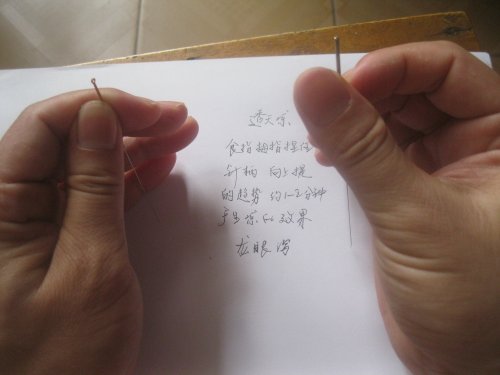 透天凉
食指拇指捏住
针柄 向上提
的趋势 约1-2分钟
产生凉的效果
龙眼湾